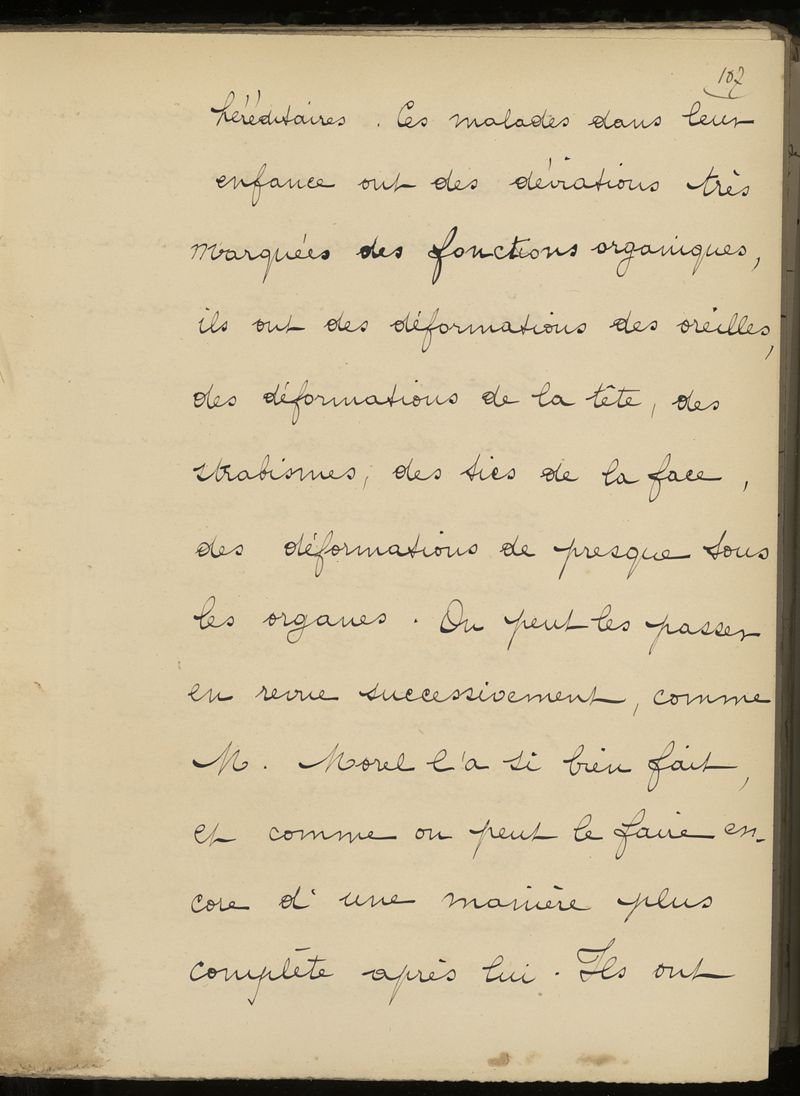 107
héréditaires. Ces malades dans leur
enfance ont des déviations très
marquées des fonctions organiques,
ils ont des déformations des oreilles,
des déformations de la tête, des
strabismes, des tics de la face,
des déformations de presque tous
les organes. On peut les passer
en revue successivement, comme
M. Morel l'a si bien fait,
et comme on peut le faire en-
core d'une manière plus
complète après lui. Ils ont